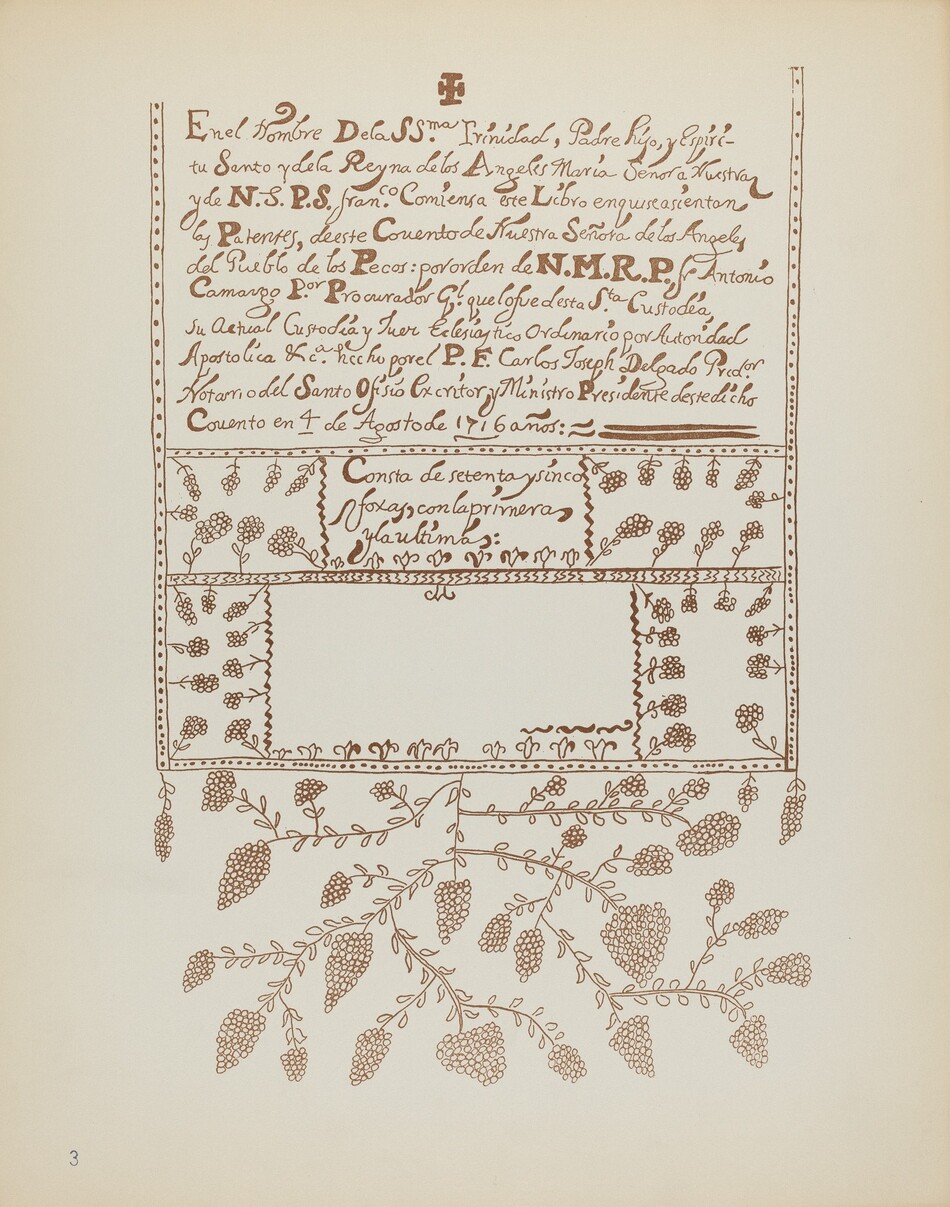 En el Nombre De la SS.ma Trinidad, Padre hijo, y Espiri-
tu Santo y dela Reyna de los Angeles Maria Señora Nuestra
y de N. S. P. S. fran.co Comiensa este Libro en quise asientan
las Patentes, de este Couento de Nuestra Señora de los Angeles
del Pueblo de los Pecos: por orden de N. M. R. P. fr Antonio
Camargo P.or Procurador G.l que lo fue desta S.ta Custodia,
su Actual Custodia y Juez Eclesiastico Ordinario por Autoridad
Apostolica &c.a hecho por el P. F. Carlos Joseph Delgado Pred.or
Notario del Santo Ofisio Excritor y Ministro Presidente deste dicho
Couento en 4 de Agosto de 1716 años:
Consta de setenta y sinco
foxas, con la primera
y la ultima:
3